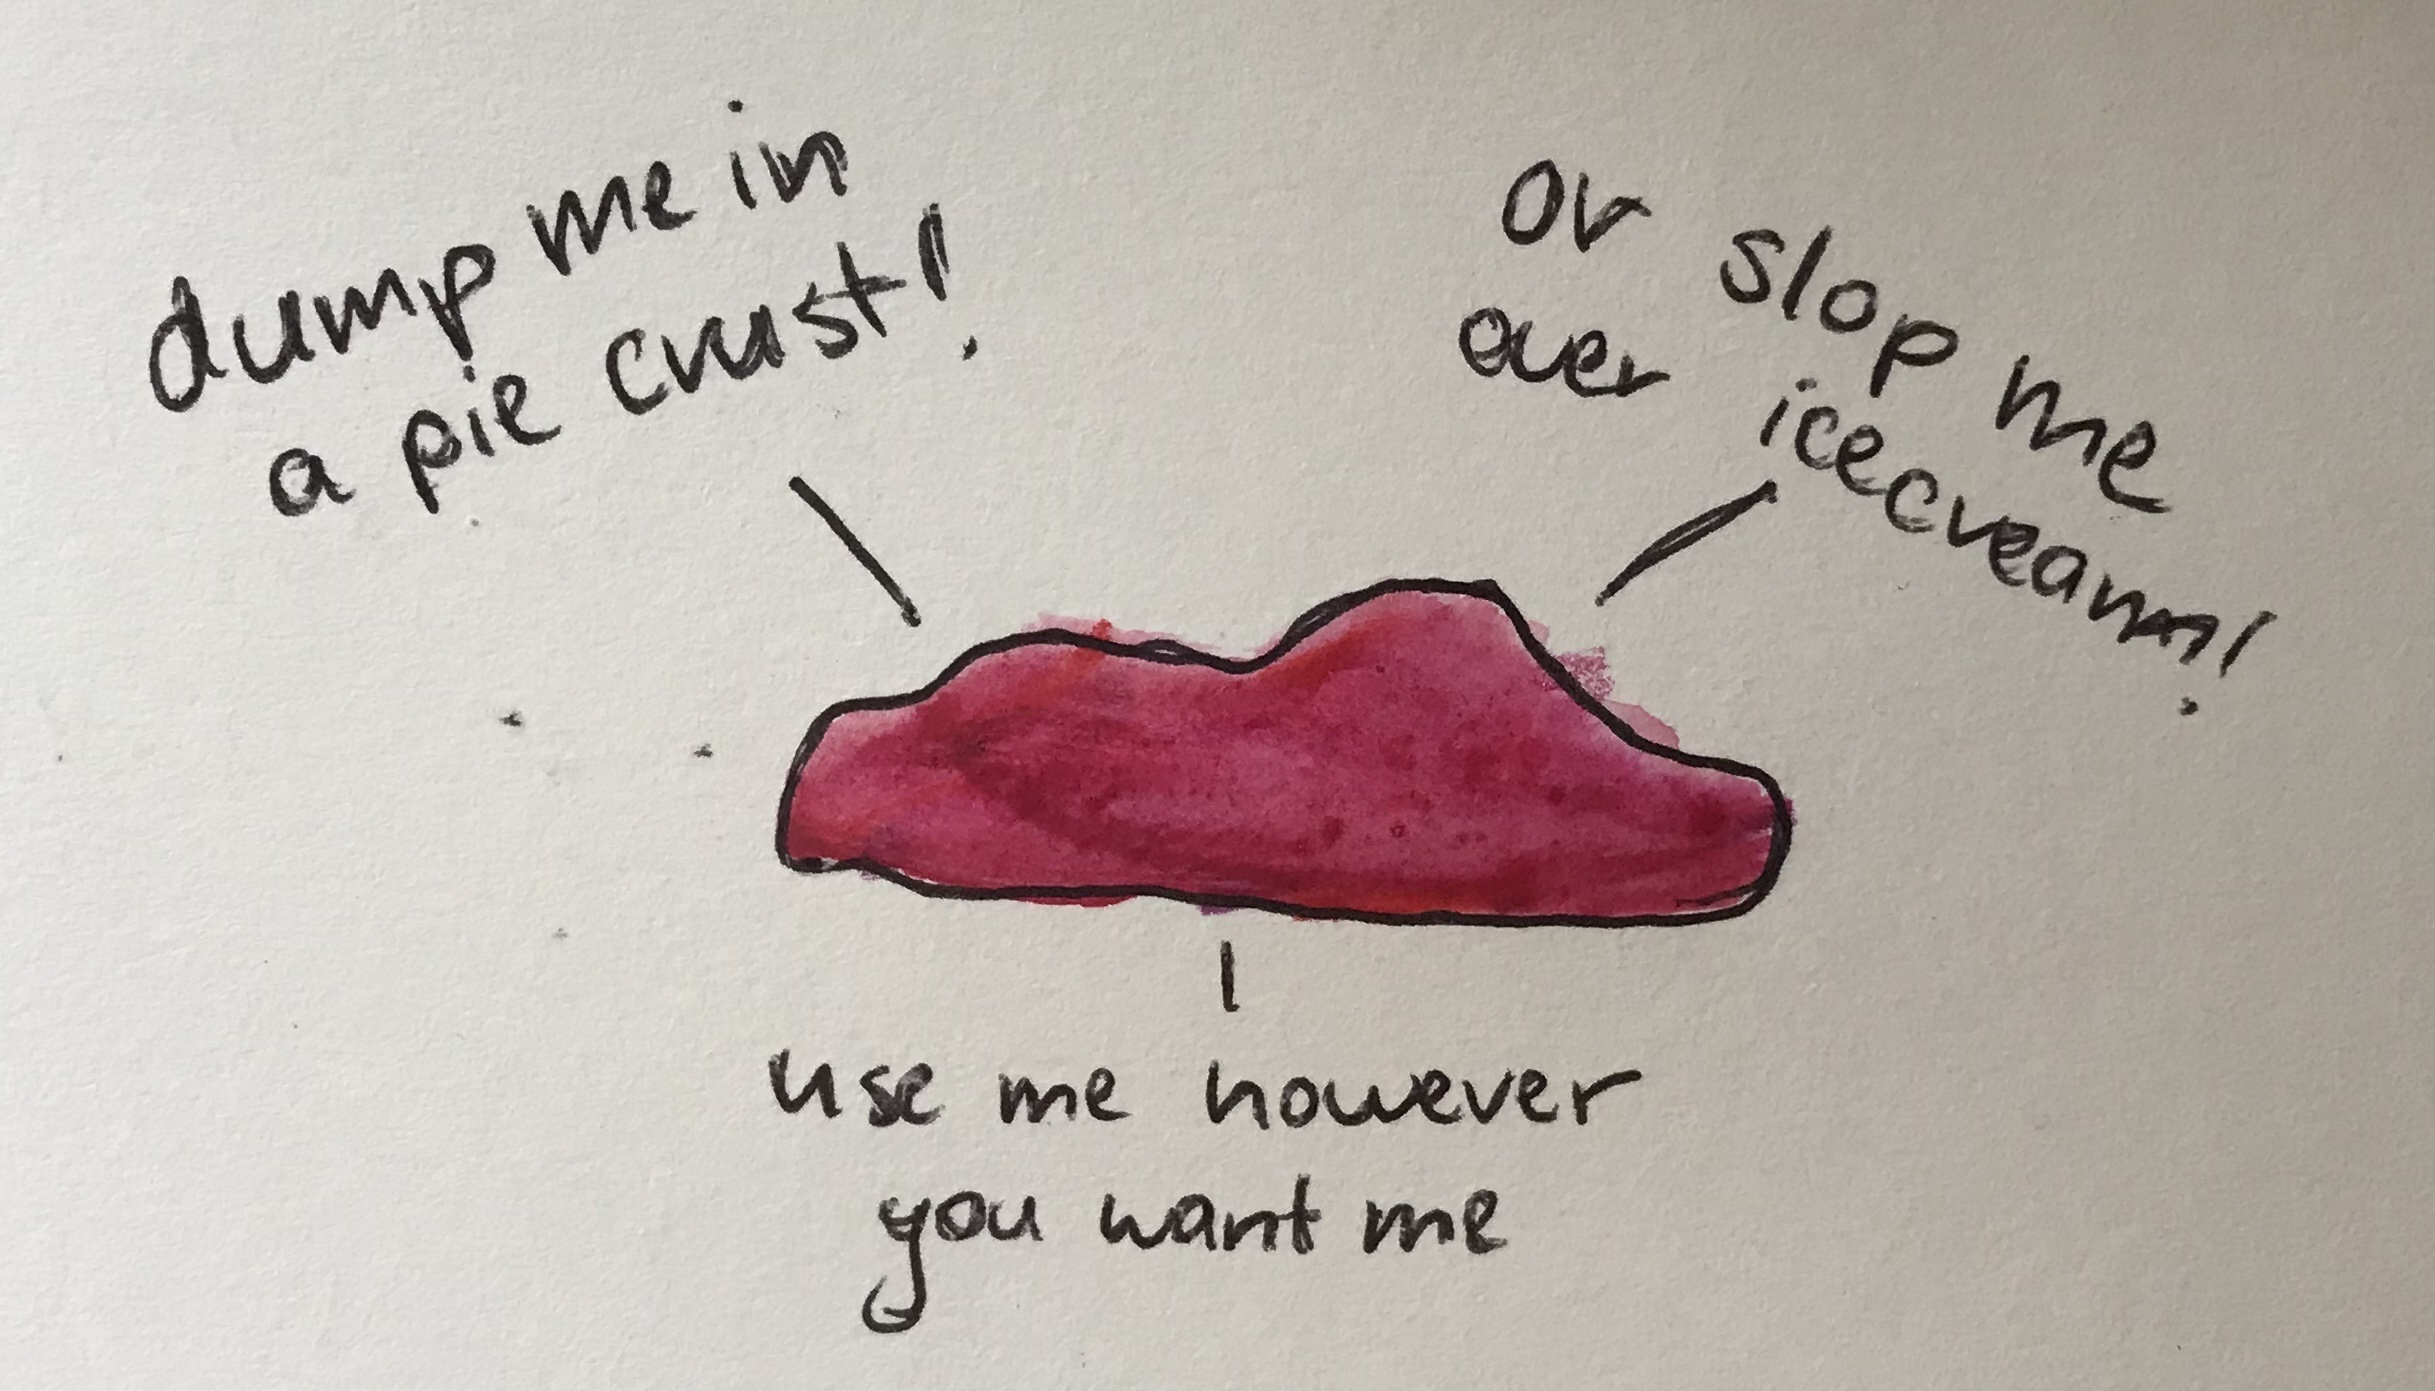 dump me in
a pie crust!
or slop me
over icecream!
use me however
you want me